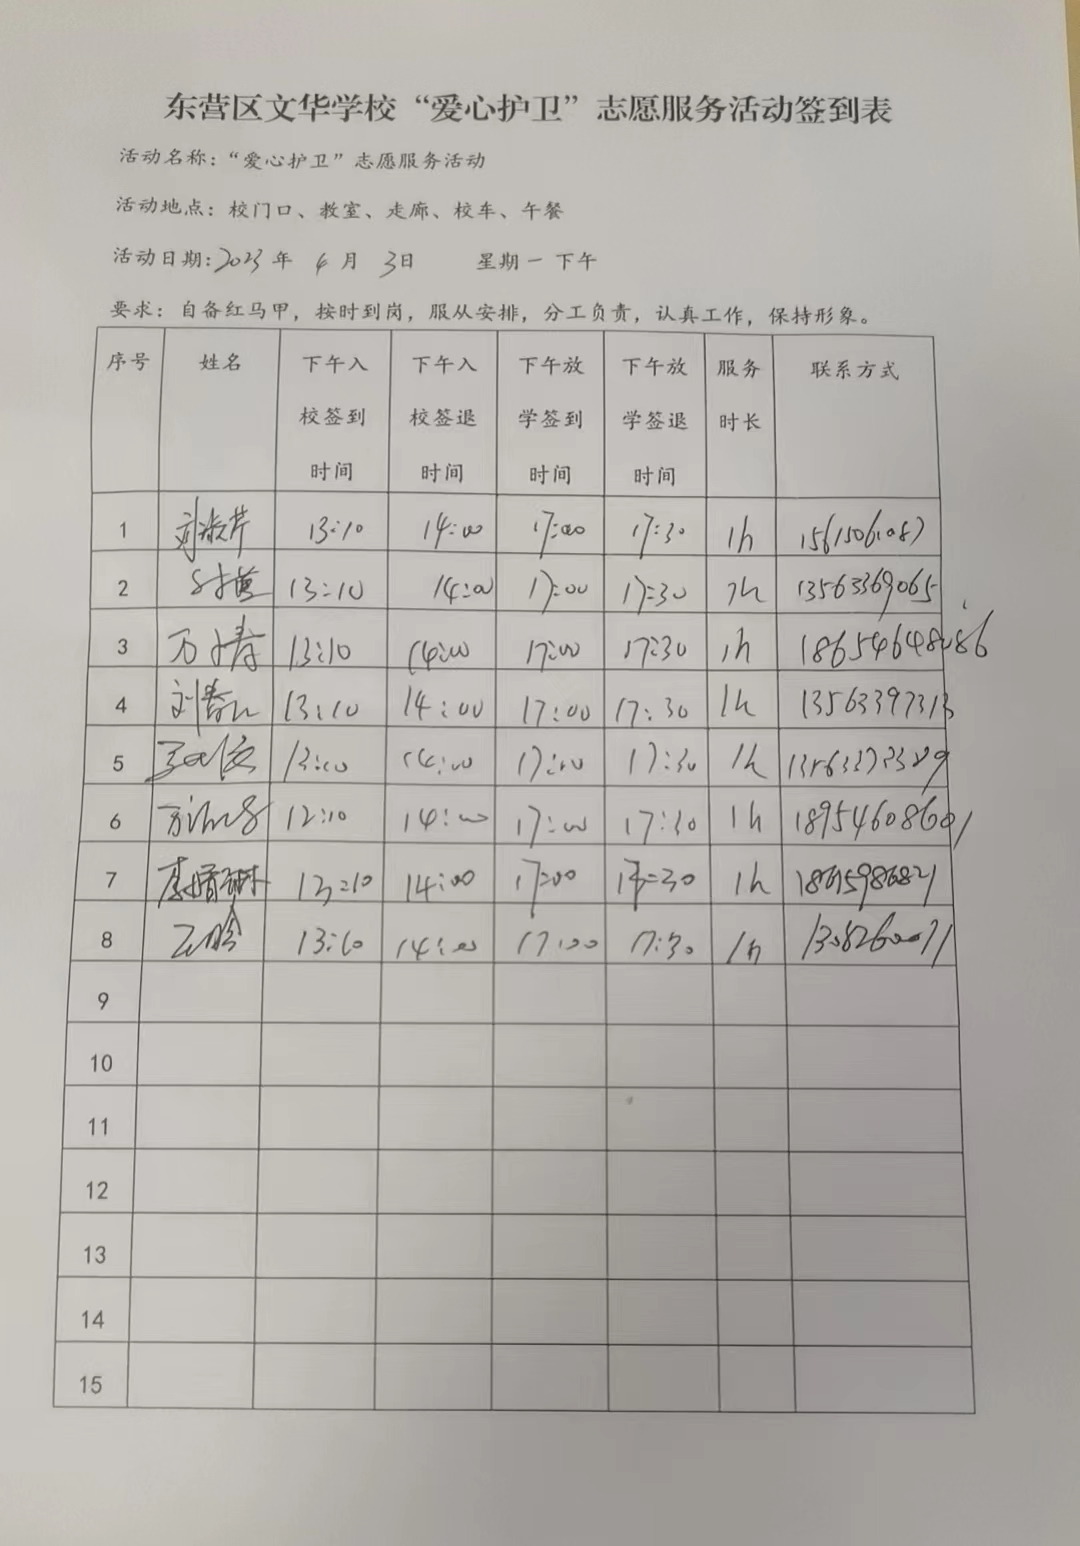 东营区文华学校“爱心护卫”志愿服务活动签到表
活动名称：“爱心护卫”志愿服务活动
活动地点：校门口、教室、走廊、校车、午餐
活动日期：2023年 4月 3日 星期一 下午
要求：自备红马甲，按时到岗，服从安排，分工负责，认真工作，保持形象。
序号 姓名 下午入校签到时间 下午入校签退时间 下午放学签到时间 下午放学签退时间 服务时长 联系方式
1 13:10 14:00 17:00 17:30 1h 15615061087
2 13:10 14:00 17:00 17:30 1h 13563369065
3 13:10 14:00 17:00 17:30 1h
4 13:10 14:00 17:00 17:30 1h 13563397313
5 13:10 14:00 17:00 17:30 1h
6 12:10 14:00 17:00 17:30 1h 18954608601
7 13:10 14:00 17:00 17:30 1h
8 13:10 14:00 17:00 17:30 1h
9
10
11
12
13
14
15